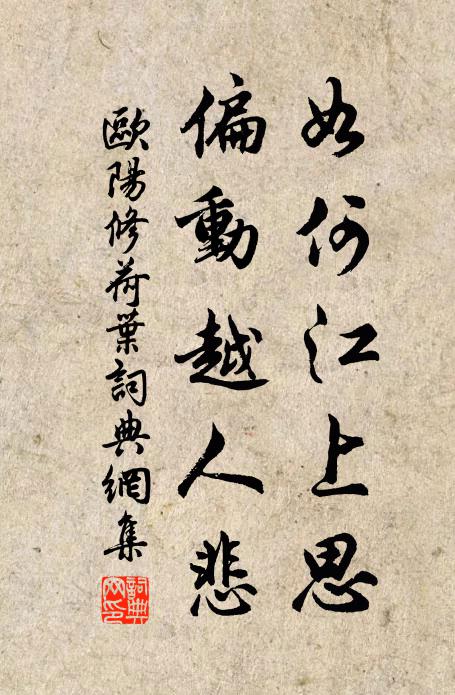 如何江上思
偏動越人悲
歐陽修荷葉詞典網集
詞典
网印